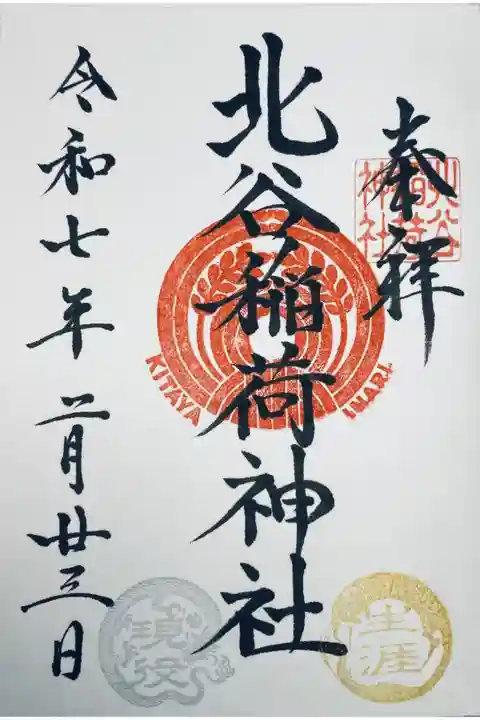 奉拝
北谷稲荷神社
北谷稲荷神社
KITAYA INARI
令和七年二月廿三日
生涯
現役